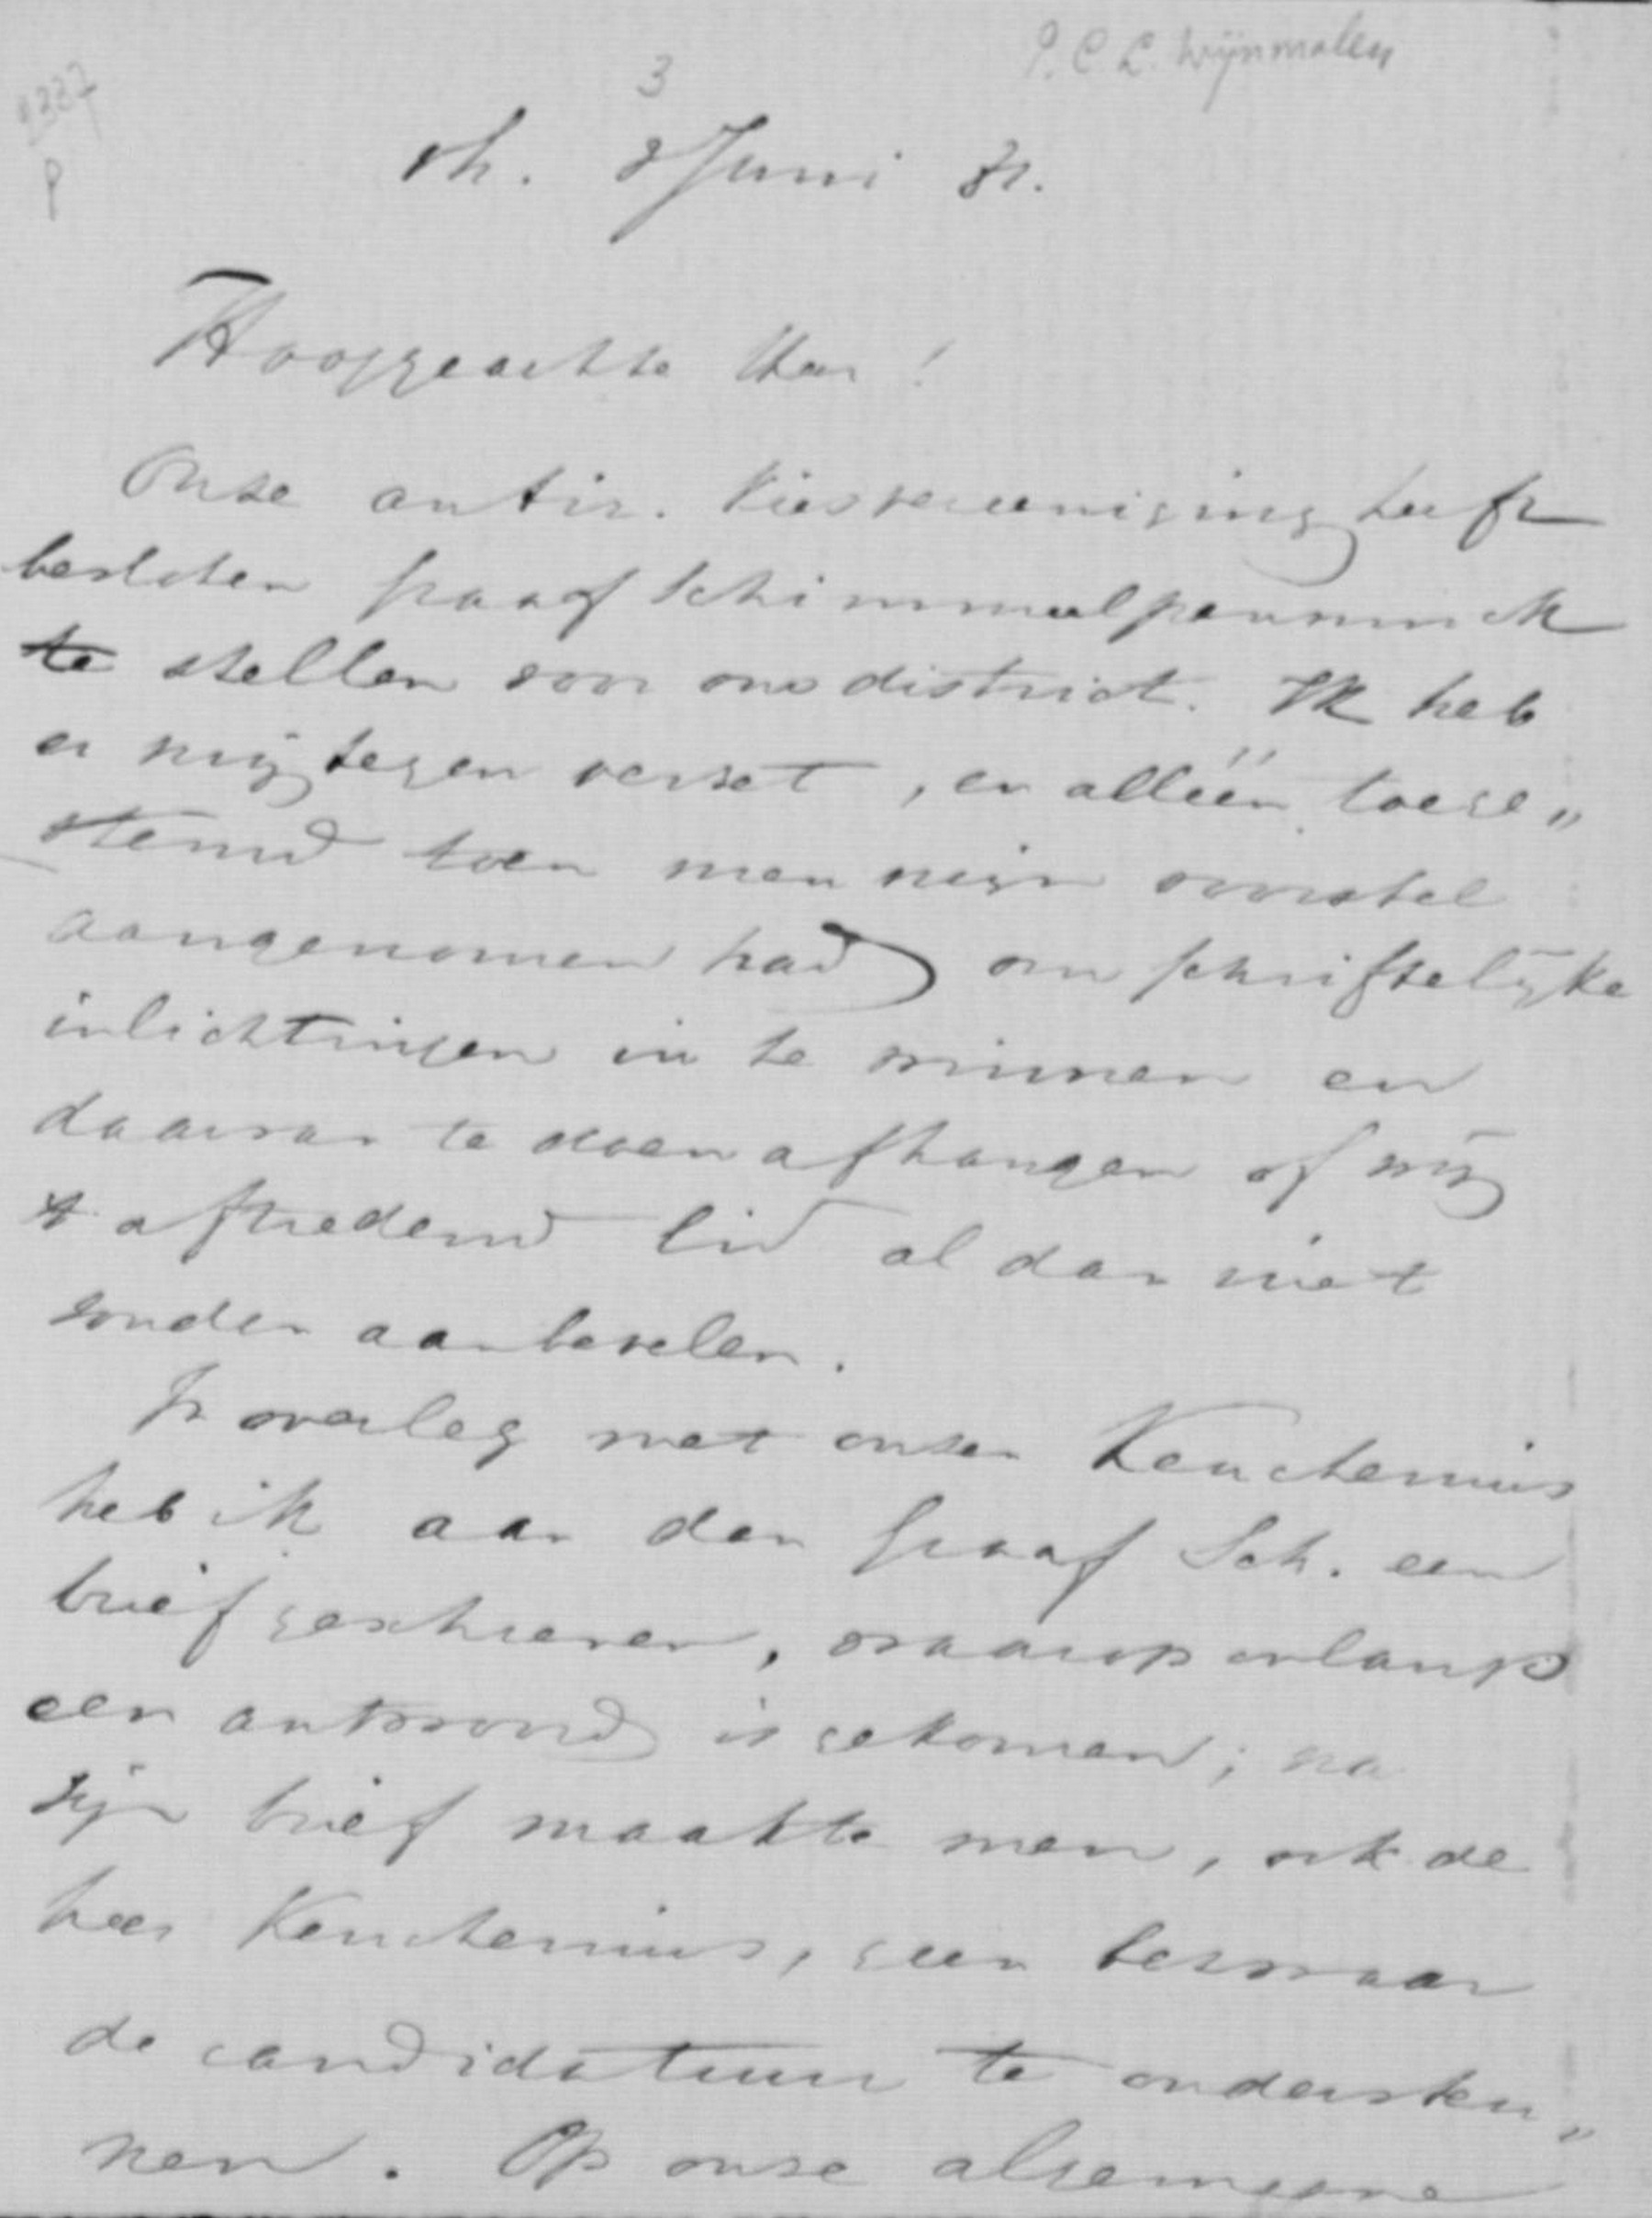 P.C.L. Wijnmalen
3
P
Juni
Hooggeachte Heer!
Onze antir. Kiesvereeniging heeft
besloten Graaf Schimmelpenninck
te stellen voor ons district. Ik heb
er mij tegen verzet, en alléén toege„
stemd toen men mijn voorstel
aangenomen had om schriftelijke
inlichtingen in te winnen en
daarvan te doen afhangen of wij
't aftredend lid al dan niet
zouden aanbevelen.
In overleg met onzen Keuchenius
heb ik aan den Graaf Sch. een
brief geschreven, waarop onlangs
een antwoord is gekomen; na
zijn brief maakte men, ook de
heer Keuchenius, geen bezwaar
de candidatuur te ondersteu„
nen. Op onze algemeene